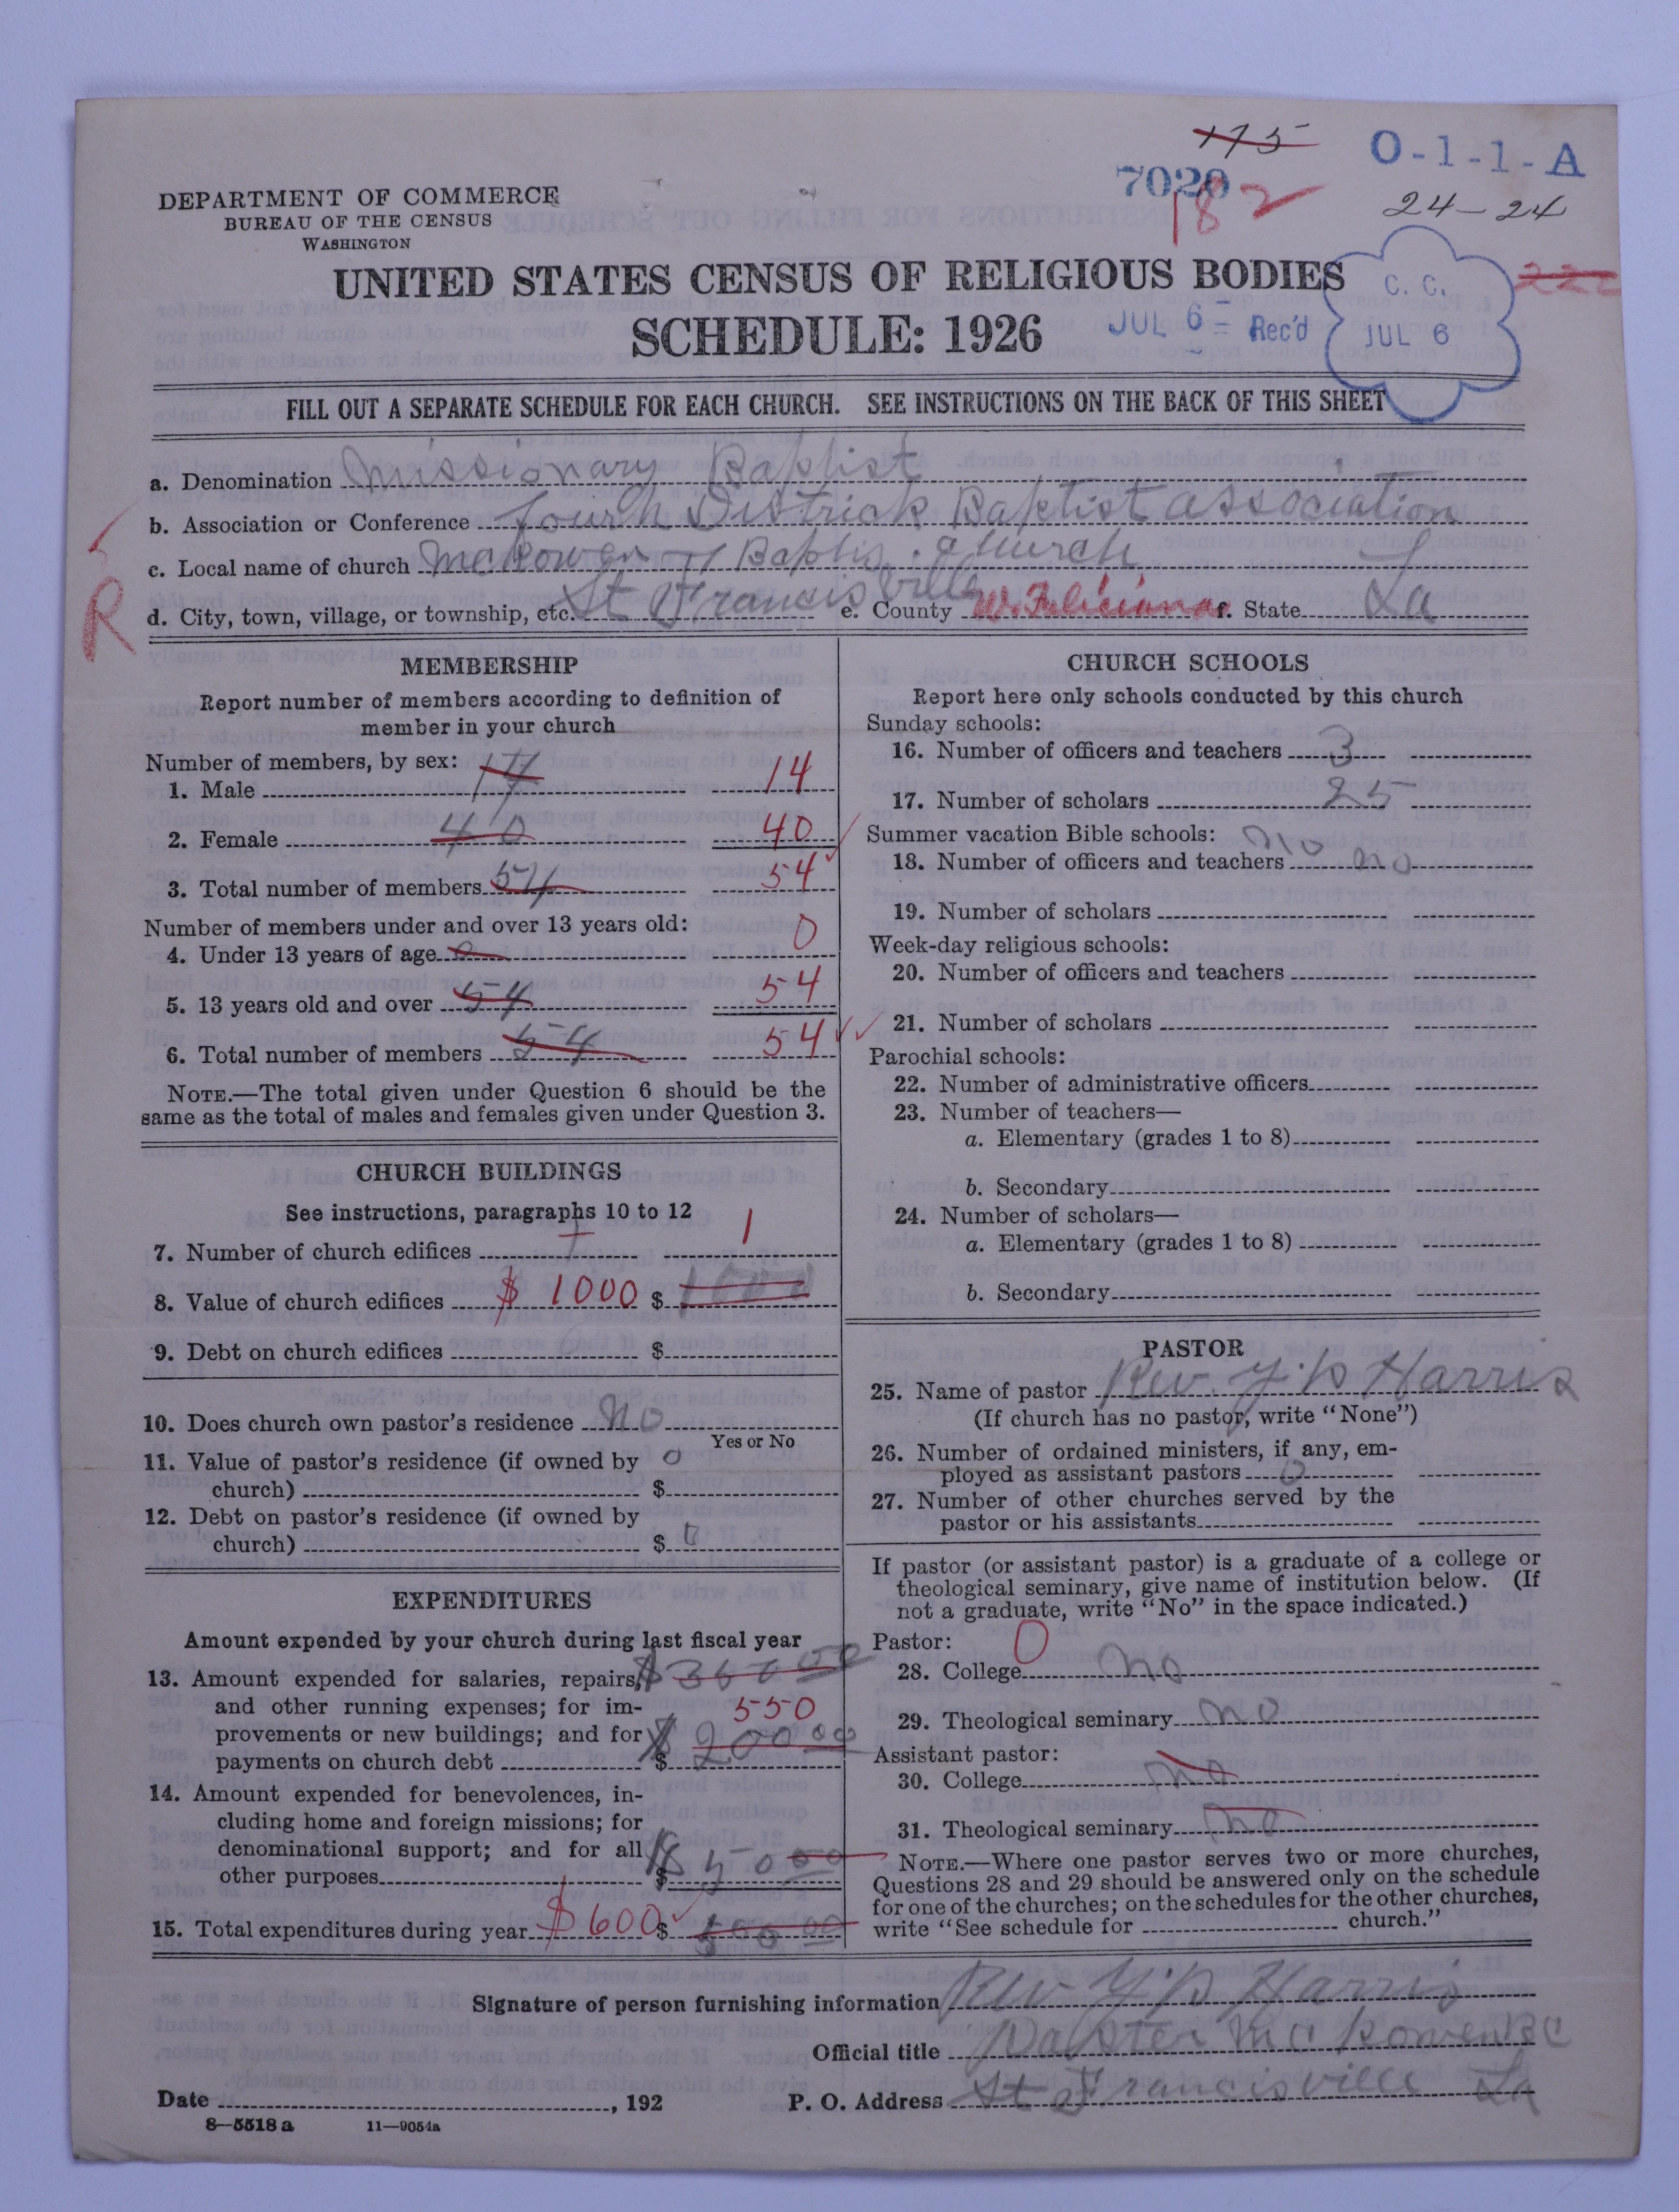 175
7020
182
O-1-1-A
24-24
DEPARTMENT OF COMMERCE
BUREAU OF THE CENSUS
WASHINGTON
UNITED STATES CENSUS OF RELIGIOUS BODIES
SCHEDULE: 1926
JUL 6 - Rec'd
C. C.
JUL 6
FILL OUT A SEPARATE SCHEDULE FOR EACH CHURCH. SEE INSTRUCTIONS ON THE BACK OF THIS SHEET
a. Denomination Missionary Baptist
b. Association or Conference fourth Districk Baptist association
c. Local name of church Baptis. church
R
d. City, town, village, or township, etc. St Francisville e. County W. Feliciana f. State La
MEMBERSHIP
Report number of members according to definition of
member in your church
Number of members, by sex:
1. Male 14 14
2. Female 40 40
3. Total number of members 54 54
Number of members under and over 13 years old:
4. Under 13 years of age 0 0
5. 13 years old and over 54 54
6. Total number of members 54 54
NOTE.—The total given under Question 6 should be the
same as the total of males and females given under Question 3.
CHURCH BUILDINGS
See instructions, paragraphs 10 to 12
7. Number of church edifices 1 1
8. Value of church edifices $ 1000 $ 1000
9. Debt on church edifices $
10. Does church own pastor's residence no
Yes or No
11. Value of pastor's residence (if owned by 0
church) $
12. Debt on pastor's residence (if owned by
church) $ 0
EXPENDITURES
Amount expended by your church during last fiscal year
13. Amount expended for salaries, repairs, $ 00
and other running expenses; for im- 550
provements or new buildings; and for $ 200 00
payments on church debt $
14. Amount expended for benevolences, in-
cluding home and foreign missions; for
denominational support; and for all $ 50 00
other purposes $
15. Total expenditures during year $600 $ 500 00
CHURCH SCHOOLS
Report here only schools conducted by this church
Sunday schools:
16. Number of officers and teachers 3
17. Number of scholars 25
Summer vacation Bible schools: no
18. Number of officers and teachers no
19. Number of scholars
Week-day religious schools:
20. Number of officers and teachers
21. Number of scholars
Parochial schools:
22. Number of administrative officers
23. Number of teachers—
a. Elementary (grades 1 to 8)
b. Secondary
24. Number of scholars—
a. Elementary (grades 1 to 8)
b. Secondary
PASTOR
25. Name of pastor Rev. Harris
(If church has no pastor, write "None")
26. Number of ordained ministers, if any, em-
ployed as assistant pastors 0
27. Number of other churches served by the
pastor or his assistants
If pastor (or assistant pastor) is a graduate of a college or
theological seminary, give name of institution below. (If
not a graduate, write "No" in the space indicated.)
Pastor: 0
28. College no
29. Theological seminary no
Assistant pastor:
30. College no
31. Theological seminary no
NOTE.—Where one pastor serves two or more churches,
Questions 28 and 29 should be answered only on the schedule
for one of the churches; on the schedules for the other churches,
write "See schedule for church."
Signature of person furnishing information Rev Harris
Official title McKowen BC
Date , 192 P. O. Address St Francisville La
8-5518 a 11-9054a